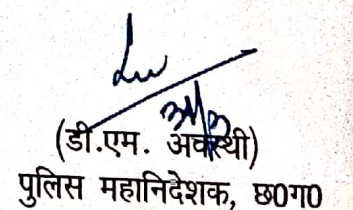 (डी.एम. अवस्थी)
पुलिस महानिदेशक, छ0ग0